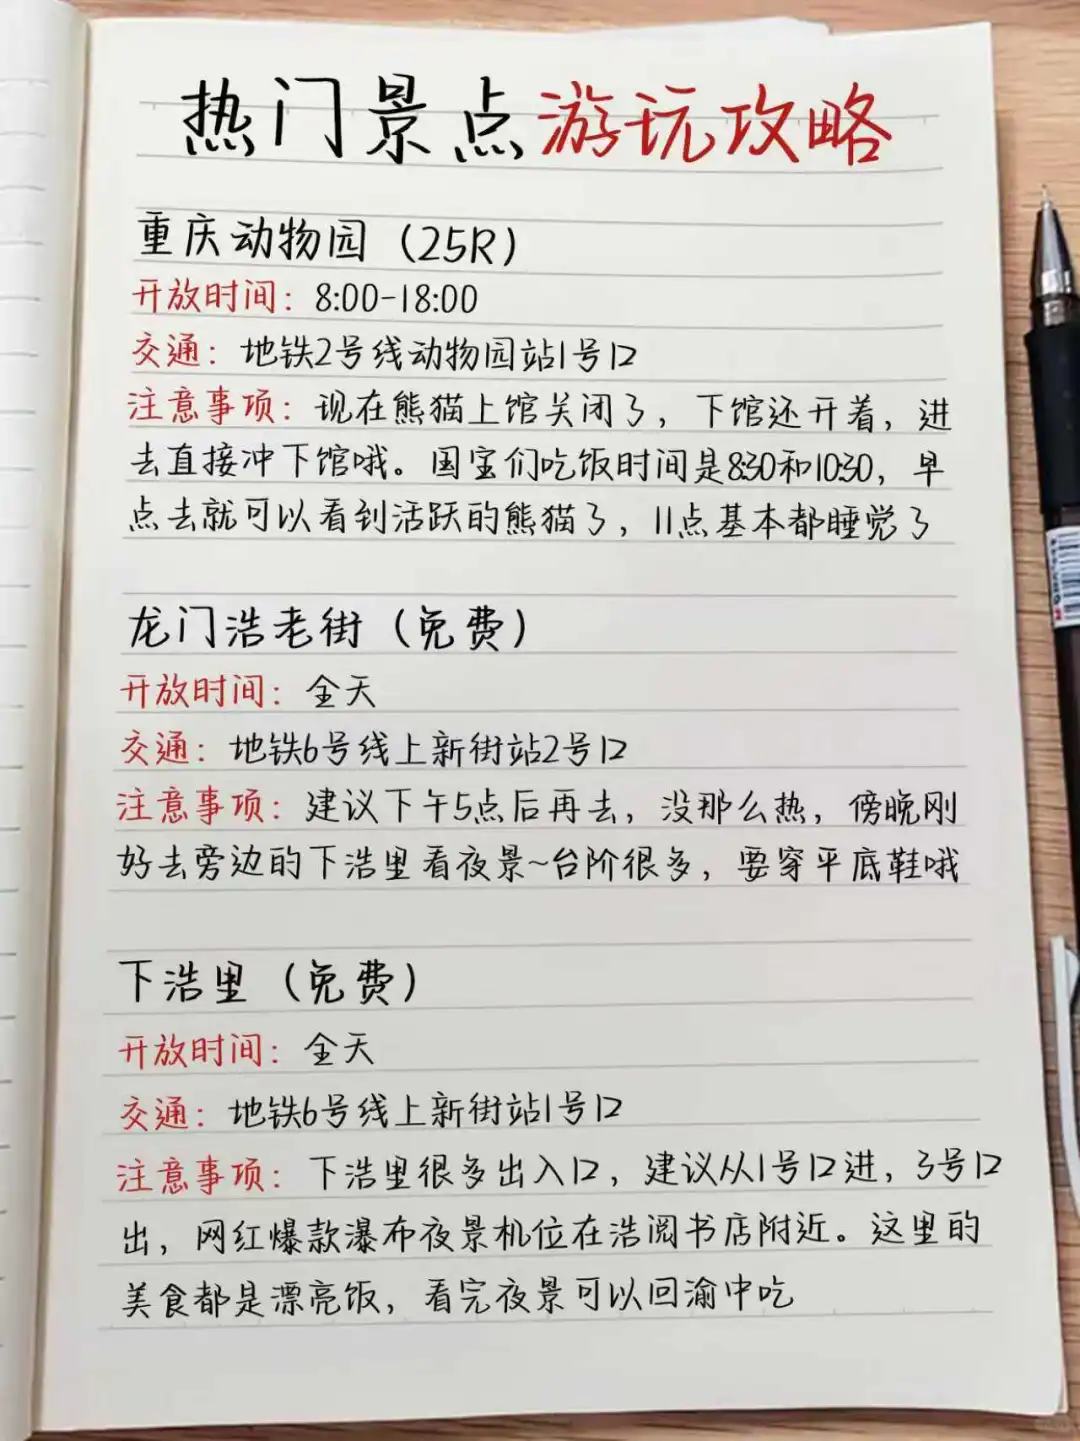 热门景点游玩攻略
重庆动物园（25R）
开放时间：8:00-18:00
交通：地铁2号线动物园站1号口
注意事项：现在熊猫上馆关闭了，下馆还开着，进
去直接冲下馆哦。国宝们吃饭时间是8:30和10:30，早
点去就可以看到活跃的熊猫了，11点基本都睡觉了
龙门浩老街（免费）
开放时间：全天
交通：地铁6号线上新街站2号口
注意事项：建议下午5点后再去，没那么热，傍晚刚
好去旁边的下浩里看夜景~台阶很多，要穿平底鞋哦
下浩里（免费）
开放时间：全天
交通：地铁6号线上新街站1号口
注意事项：下浩里很多出入口，建议从1号口进，3号口
出，网红爆款瀑布夜景机位在浩阅书店附近。这里的
美食都是漂亮饭，看完夜景可以回渝中吃